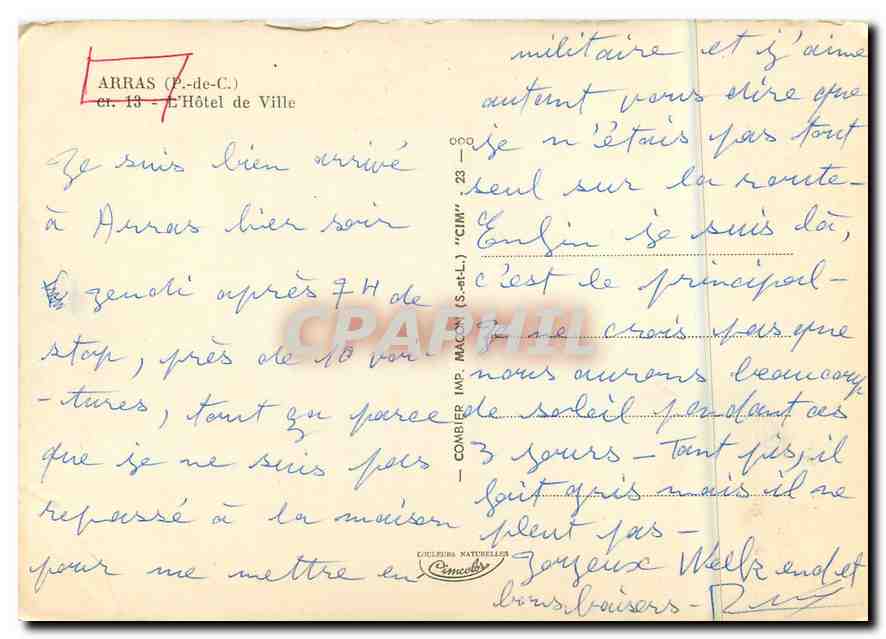 ARRAS (P.-de-C.)
CI. 13 - L'Hôtel de Ville
Je suis bien arrivé
à Arras hier soir
jeudi après 7H de
stop, près de 10 voi-
-tures, tout ça parce
que je ne suis pas
repassé à la maison
pour me mettre en
militaire et j'aime
autant vous dire que
je n'étais pas tout
seul sur la route-
Enfin je suis là,
c'est le principal-
Je ne crois pas que
nous aurons beaucoup
de soleil pendant ces
3 jours - Tant pis, il
fait gris mais il ne
pleut pas-
Joyeux Week end et
bons baisers-
COMBIER IMP. MACON (S.-et-L.) "CIM" . 23 —
COULEURS NATURELLES
Cimcolor
CPAPHIL